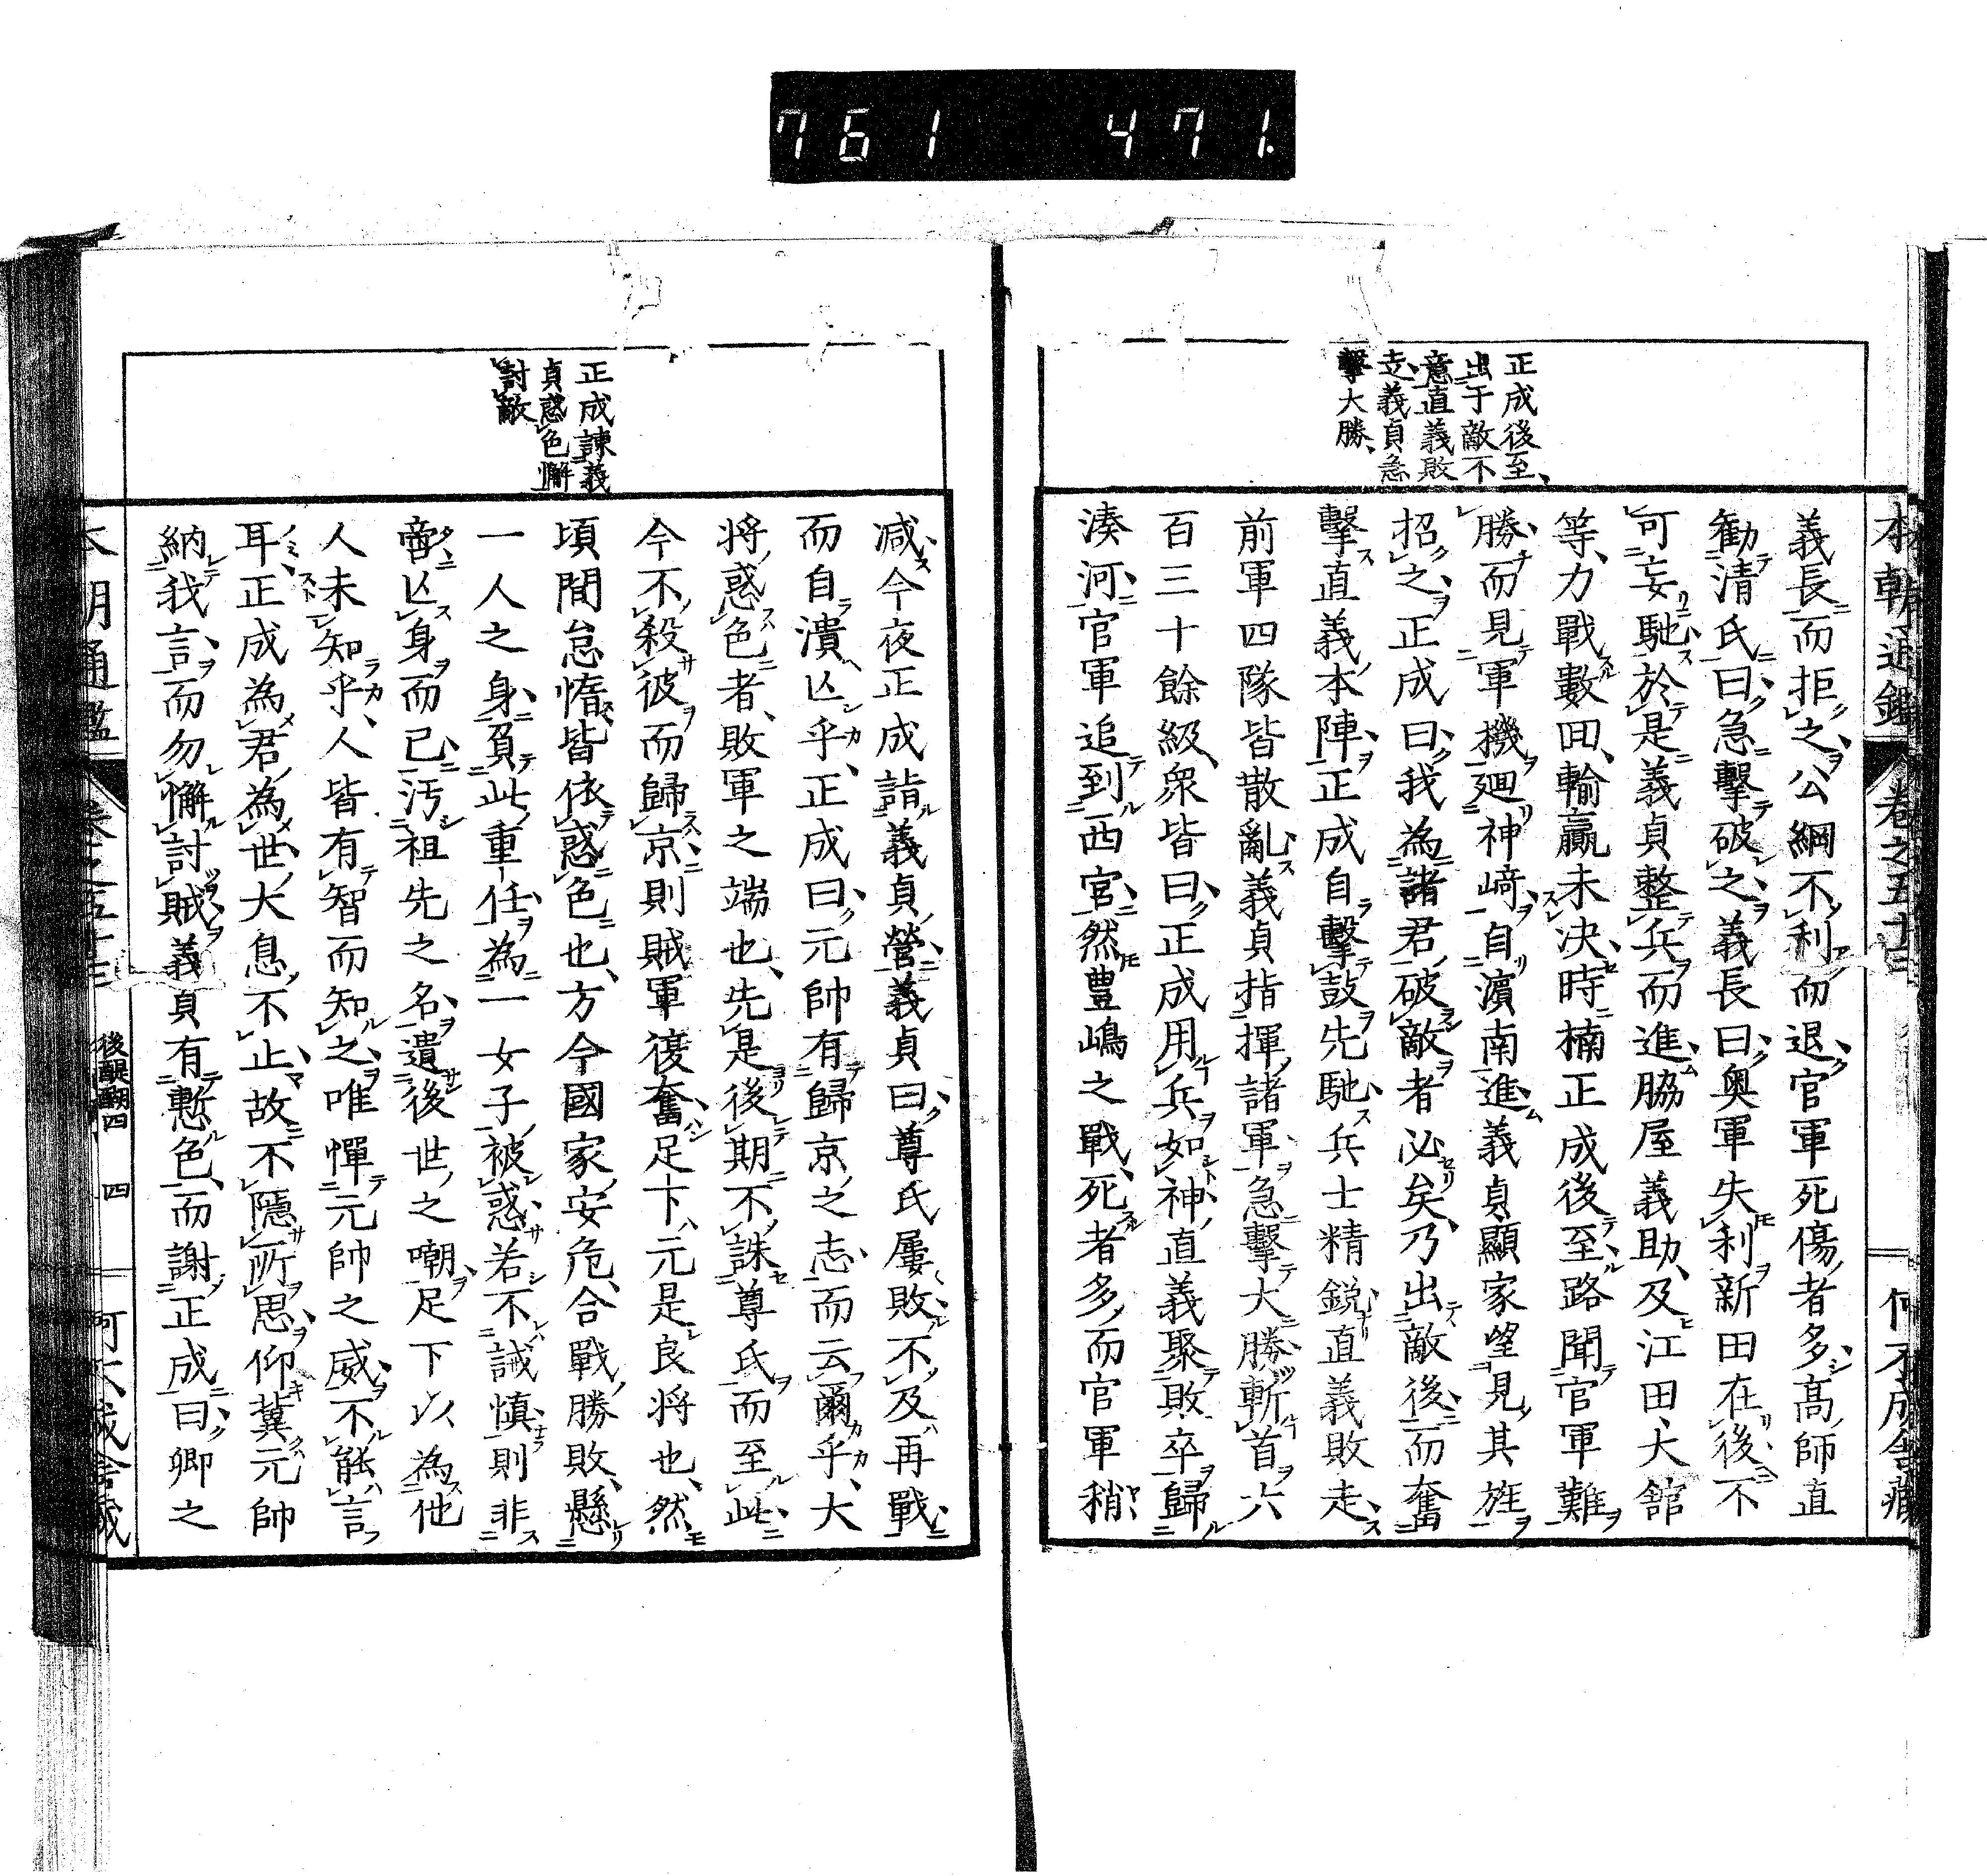 761 471.
本朝通鑑 卷之五十三 何不成舍藏
正成後至、
出于敵不
意直義敗
走義貞急
擊大勝、
義長而拒之公綱不利而退官軍死傷者多高師直
勸清氏曰急擊破之義長曰奥軍失利新田在後不
可妄馳於是義貞整兵而進脇屋義助、及江田、大舘
等、力戰數囬、輸贏未决、時楠正成後至路聞官軍難
勝而見軍機廻神﨑自濵南進義貞顯家望見其旌
招之正成曰我為諸君破敵者必矣、乃出敵後而奮
擊直義本陣正成自擊鼓先馳兵士精鋭直義敗走
前軍四隊皆散亂義貞指揮諸軍急擊大勝斬首六
百三十餘級、衆皆曰正成用兵如神直義聚敗卒歸
湊河官軍追到西宮然豊嶋之戰、死者多而官軍稍
正成諫義
貞惑色懈
討敵
减今夜正成詣義貞營義貞曰尊氏屢敗不及再戰
而自潰亾乎、正成曰元帥有歸京之志而云爾乎、大
将惑色者、敗軍之端也、先是後期不誅尊氏而至此
今不殺彼而歸京則賊軍復奮足下元是良将也、然
頃間怠惰皆依惑色也、方今國家安危、合戰勝敗、懸
一人之身負此重任為一女子被惑若不誡慎則非
啻亾身而已汚祖先之名遺後世之嘲足下以為他
人未知乎、人皆有智而知之唯憚元帥之威不能言
耳、正成為君為世大息不止故不隱所思仰冀元帥
納我言而勿懈討賊義貞有慙色而謝正成曰卿之
本朝通鑑 卷之五十三 後醍醐四 四 何不成舍藏